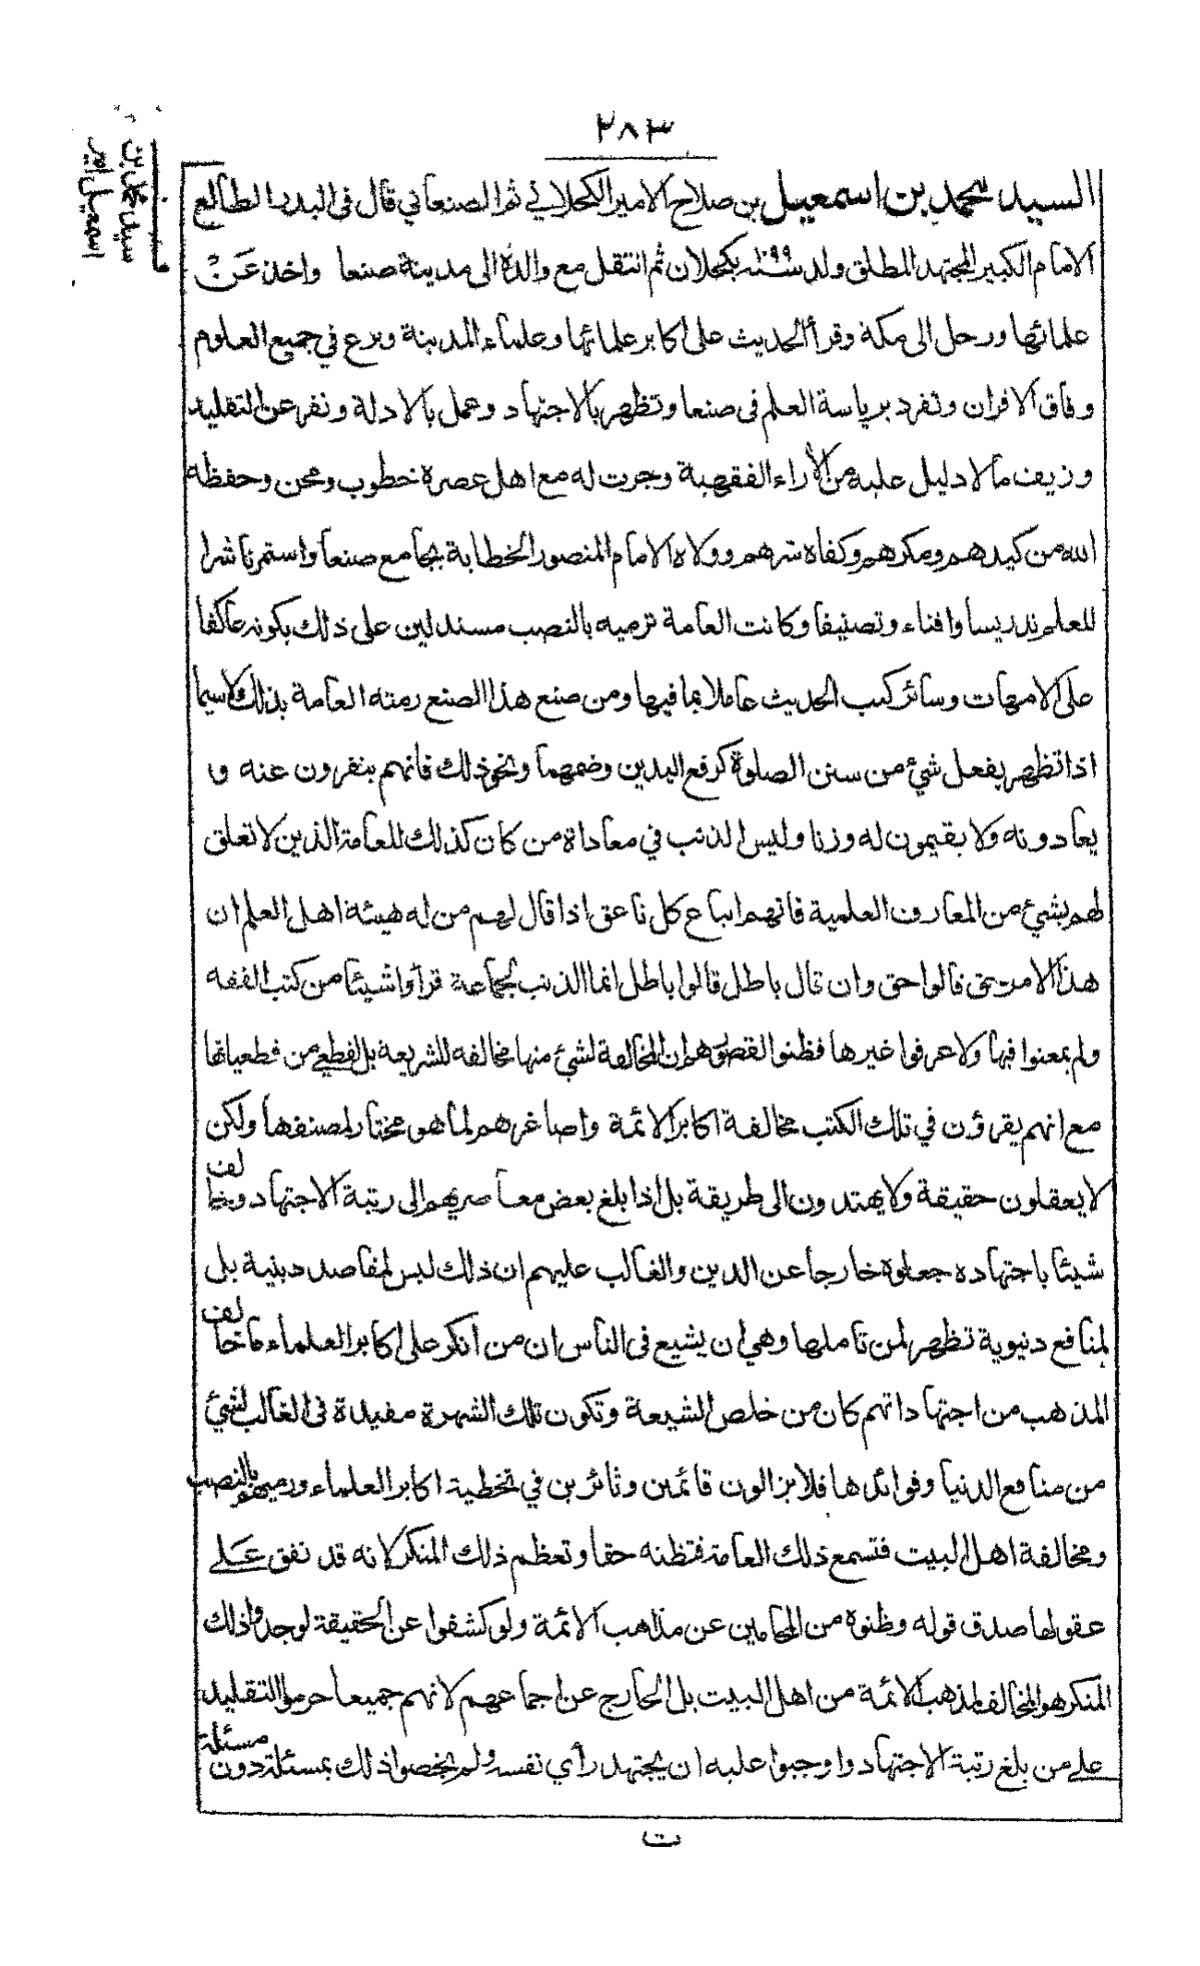 ٢٨٣
سيد محمد بن
اسمعيل امير
السيد محمد بن اسمعيل بن صلاح الامير الكحلاني ثم الصنعاني قال فى البدر الطالع
الامام الكبير المجتهد المطلق ولد سنة ١٠٩٩ بكحلان ثم انتقل مع والده الى مدينة صنعا واخذ عن
علمائها ورحل الى مكة وقرأ الحديث على اكابر علمائها وعلماء المدينة وبرع في جميع العلوم
وفاق الاقران وتفرد برياسة العلم فى صنعا وتظهر بالاجتهاد وعمل بالادلة ونفر عن التقليد
وزيف مالا دليل عليه من الأراء الفقهية وجرت له مع اهل عصره خطوب ومحن وحفظه
الله من كيدهم ومكرهم وكفاه شرهم وولاه الامام المنصور الخطابة بجامع صنعا واستمر ناشرا
للعلم تدريسا وافتاء وتصنيفا وكانت العامة ترميه بالنصب مستدلين على ذلك بكونه عاكفا
على الامهات وسائر كتب الحديث عاملا بما فيها ومن صنع هذا الصنع رمته العامة بذلك لاسيما
اذا تظهر بفعل شيئ من سنن الصلوة كرفع اليدين وضمهما ونحو ذلك فانهم ينفرون عنه و
يعادونه ولا يقيمون له وزنا وليس الذنب في معاداة من كان كذلك للعامة الذين لا تعلق
لهم بشيئ من المعارف العلمية فانهم اتباع كل ناعق اذا قال لهم من له هيئة اهل العلم ان
هذا الامر حق قالوا حق وان قال باطل قالوا باطل انما الذنب لجماعة قرأوا شيئا من كتب الفقه
ولم يمعنوا فيها ولا عرفوا غيرها فظنوا لقصورهم ان المخالفة لشيئ منها مخالفه للشريعة بل لقطعي من قطعياتها
مع انهم يقرؤن في تلك الكتب مخالفة اكابر الائمة واصاغرهم لما هو مختار لمصنفها ولكن
لا يعقلون حقيقة ولا يهتدون الى طريقة بل اذا بلغ بعض معاصريهم الى رتبة الاجتهاد وخالف
شيئا باجتهاده جعلوه خارجا عن الدين والغالب عليهم ان ذلك ليس لمقاصد دينية بل
لمنافع دنيوية تظهر لمن تاملها وهي ان يشيع فى الناس ان من أنكر على اكابر العلماء ما خالف
المذهب من اجتهاداتهم كان من خلص الشيعة وتكون تلك الشهرة مفيدة فى الغالب لشيئ
من منافع الدنيا وفوائدها فلا يزالون قائمين وثائرين في تخطية اكابر العلماء ورميهم بالنصب
ومخالفة اهل البيت فتسمع ذلك العامة فتظنه حقا وتعظم ذلك المنكر لانه قد نفق على
عقولها صدق قوله وظنوه من المحامين عن مذاهب الائمة ولو كشفوا عن الحقيقة لوجدوا ذلك
المنكر هو المخالف لمذهب الائمة من اهل البيت بل الخارج عن اجماعهم لانهم جميعا حرموا التقليد
على من بلغ رتبة الاجتهاد واوجبوا عليه ان يجتهد رأي نفسه ولم يخصوا ذلك بمسئلة دون مسئلة
ت